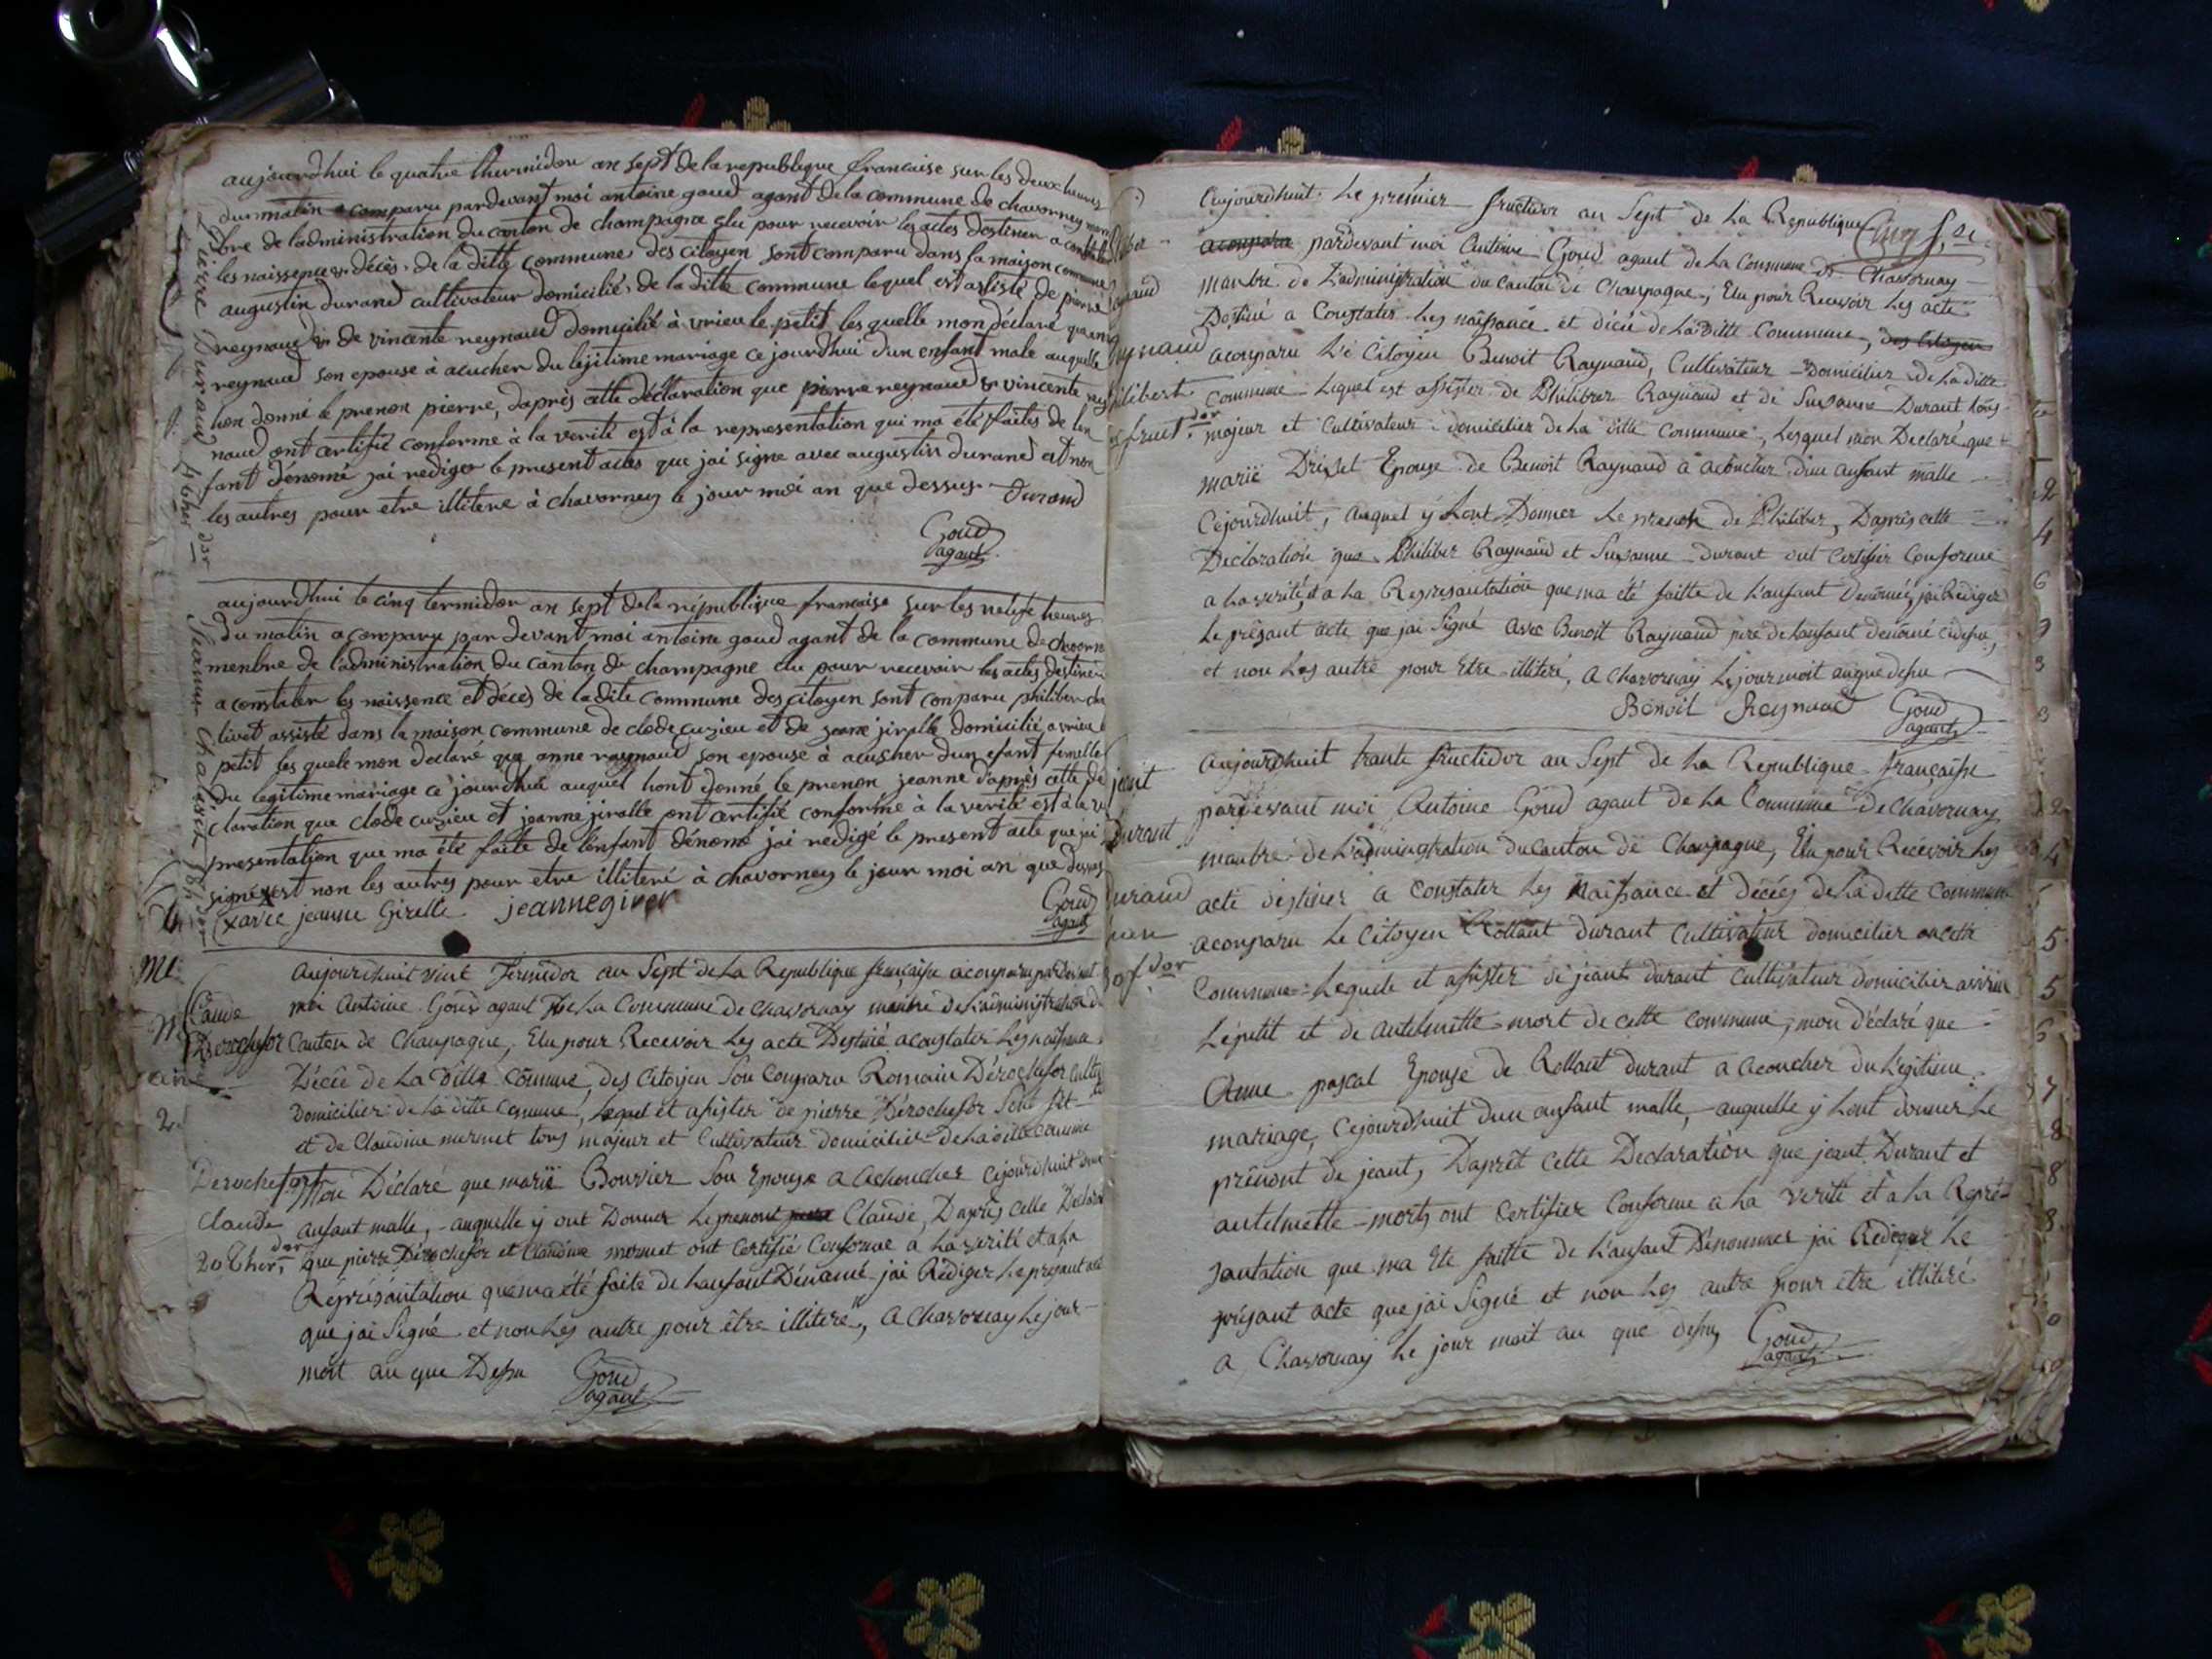 aujourdhui le quatre thermidor an sept de la republique francaise sur les deux heures
du matin a comparu pardevant moi antoine goud agant de la commune de chavorney mem
bre de ladministration du canton de champagne elu pour recevoir les actes destiner a constater
les naissence & décès de la ditte commune des citoyen sont comparu dans la maison commune
augustin durand cultivateur domicilié de la ditte commune lequel est asisté de pierre
reynaud & de vincente reynaud domicilié à vrieu le petit les quelle mon déclaré que
reynaud son epouse à acucher du lejitime mariage ce jourdhui dun enfant male auquelle
hon donné le prenon pierre, daprès cette déclaration que pierre reynaud & vincente rey
naud ont artifié conforme à la verité est à la representation qui ma été faites de len
fant dénomé jai rediger le present actes que jai signe avec augustin durand et non
les autres pour etre illitere à chavorney le jour moi an que dessus Durand
Goud
agant
Pierre Durand 4 ther dor
aujourdhui le cinq termidor an sept de la république francaise sur les neuf heures
du matin a comparu par devant moi antoine goud agant de la commune de chavorn
menbre de l'administration du canton de champagne elu pour recevoir les actes destiner
a constater les naissence et décès de la dite commune des citoyen sont conparu philiber cha
livet assisté dans la maison commune de clode cuzieu et de jeane jiralle domicilié a vrieu
petit les quele mon declaré que anne raynaud son epouse à acusher dun efant femelle
du legitime mariage ce jourdhui auquel hont donné le prenon jeanne daprès cette dé
claration que clode cuzieu et jeanne jiralle ont artifié conforme à la verité est à la re
presentation que ma été faite de lenfant dénomé jai redigé le present acte que jai
signé x est non les autres pour etre illiteré à chavorney le jour moi an que dessus
(x avec jeanne Girelle jeannegirer
Goud
agant
Jeanne chalivet
aujourdhuit vint Termidor an Sept de La Republique française acomparu pardevant
moi Antoine Goud agant De La Commune de Chavornay manbre de L'administration du
Canton de Champagne, Elu pour Recevoir Les acte Destiné a constater Les naissance
Décée de La Ditte Commune, des Citoyen Son Comparu Romain Dérochefor Cultiv
Domicilier de La ditte Commune, Lequel et assister de pierre Dérochefor
et de Claudine mermet tous majeur et Cultivateur domicilier de La ditte Comune
Mon Déclaré que marië Bouvier Son Epouse a Achoucher Cejourdhuit dun
anfant malle, auquelle y ont Donner Le prenont Claude, Daprès Celle Declara
que pierre Dérochefor et Claudine mermet ont Certifié Conforme a La verité et a La
Réprésantation que ma été faite de L'anfant Dénomé jai Rédiger Le présant acte
que jai Signé et non Les autre pour être illiteré, A Chavornay Le jour
moit an que Dessu Goud
agant
Derochefort
Claude
20 Ther dor
Aujourdhuit Le premier fructidor an Sept de La Republique
pardevant moi Antoine Goud agant de La Commune de Chavornay
manbre de L'administration du Canton de Champagne, Elu pour Recevoir Les acte
Destiné a Constater Les naissance et décée de La Ditte Commune, des Citoyen
acomparu Le Citoyen Benoit Raynaud, Cultivateur Domicilier de La Ditte
Commune Lequel est assister de Philiber Raynaud et de Suzanne Durant tous
majeur et Cultivateur domicilier de La ditte Commune, Lesquel mon Declaré que
marië Drivet Epouse de Benoit Raynaud a acoucher dun anfant malle
Cejourdhuit, auquel y Lont Donner Le prenon de Philiber, Daprès cette
Declaration que Philiber Raynaud et Suzanne Durant ont Certifier Conforme
a La verité, et a La Represantation que ma été faitte de L'anfant Dénomé, jai Rediger
Le présant acte que jai Signé avec Benoit Raynaud pere de Lanfant denomé cidessu,
et non Les autre pour Etre illitéré, A Chavornay Le jour moit an que dessu
Benoit Reynaud Goud
agant
Aujourdhuit trante fructidor an Sept de La Republique française
pardevant moi Antoine Goud agant de La Commune De Chavornay
manbre de L'administration du Canton de Champagne, Elu pour Recévoir Les
acte destiner a Constater Les Naissance et décées de La ditte Commune
acomparu Le Citoyen Rollant Durant Cultivateur domicilier
Commune Lequele et assister de jeant durant Cultivateur domicilier avrieu
Le petit et de antelmette mort de cette Commune, mon déclaré que
Anne pascal Epouse de Rollant durant a acoucher du Légitime
mariage, Cejourdhuit dun anfant malle, auquelle y Lont donner Le
prénont de jeant, Daprêt cette Declaration que jeant Durant et
antelmette mort ont Certifier Conforme a La verité et a La Repré
santation que ma Eté faitte de L'anfant Dénommer jai Rédiger Le
présant acte que jai Signé et non Les autre pour être illitéré
A Chavornay Le jour moit an que dessu, Goud
agant
jeant
Durant